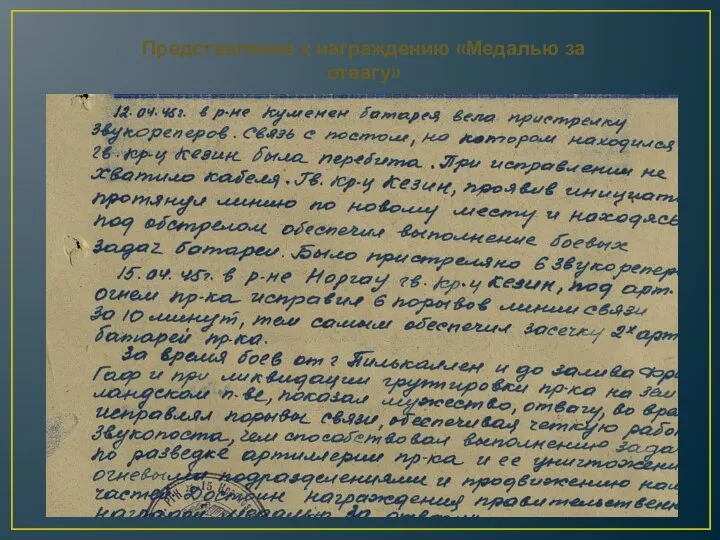 Представление к награждению «Медалью за
отвагу»
12.04.45г. в р-не Куменен батарея вела пристрелку
звукореперов. Связь с постом, на котором находился
гв. кр-ц Кезин была перебита. При исправлении не
хватило кабеля. Гв. кр-ц Кезин, проявив инициати
протянул линию по новому месту и находясь
под обстрелом обеспечил выполнение боевых
задач батареи. Было пристреляно 6 звукорепер
15.04.45г. в р-не Норгау гв. кр-ц Кезин, под арт.
огнем пр-ка исправил 6 порывов линии связи
за 10 минут, тем самым обеспечил засечку 2х арт
батарей пр-ка.
За время боев от г Пилькаллен и до залива Фри
Гаф и при ликвидации группировки пр-ка на Зем
ландском п-ве, показал мужество, отвагу, во вре
исправлял порывы связи, обеспечивая четкую рабо
звукопоста, чем способствовал выполнению зада
по разведке артиллерии пр-ка и ее уничтожени
огневыми подразделениями и продвижению наш
частей. Достоин награждения правительственн
наградой медалью за